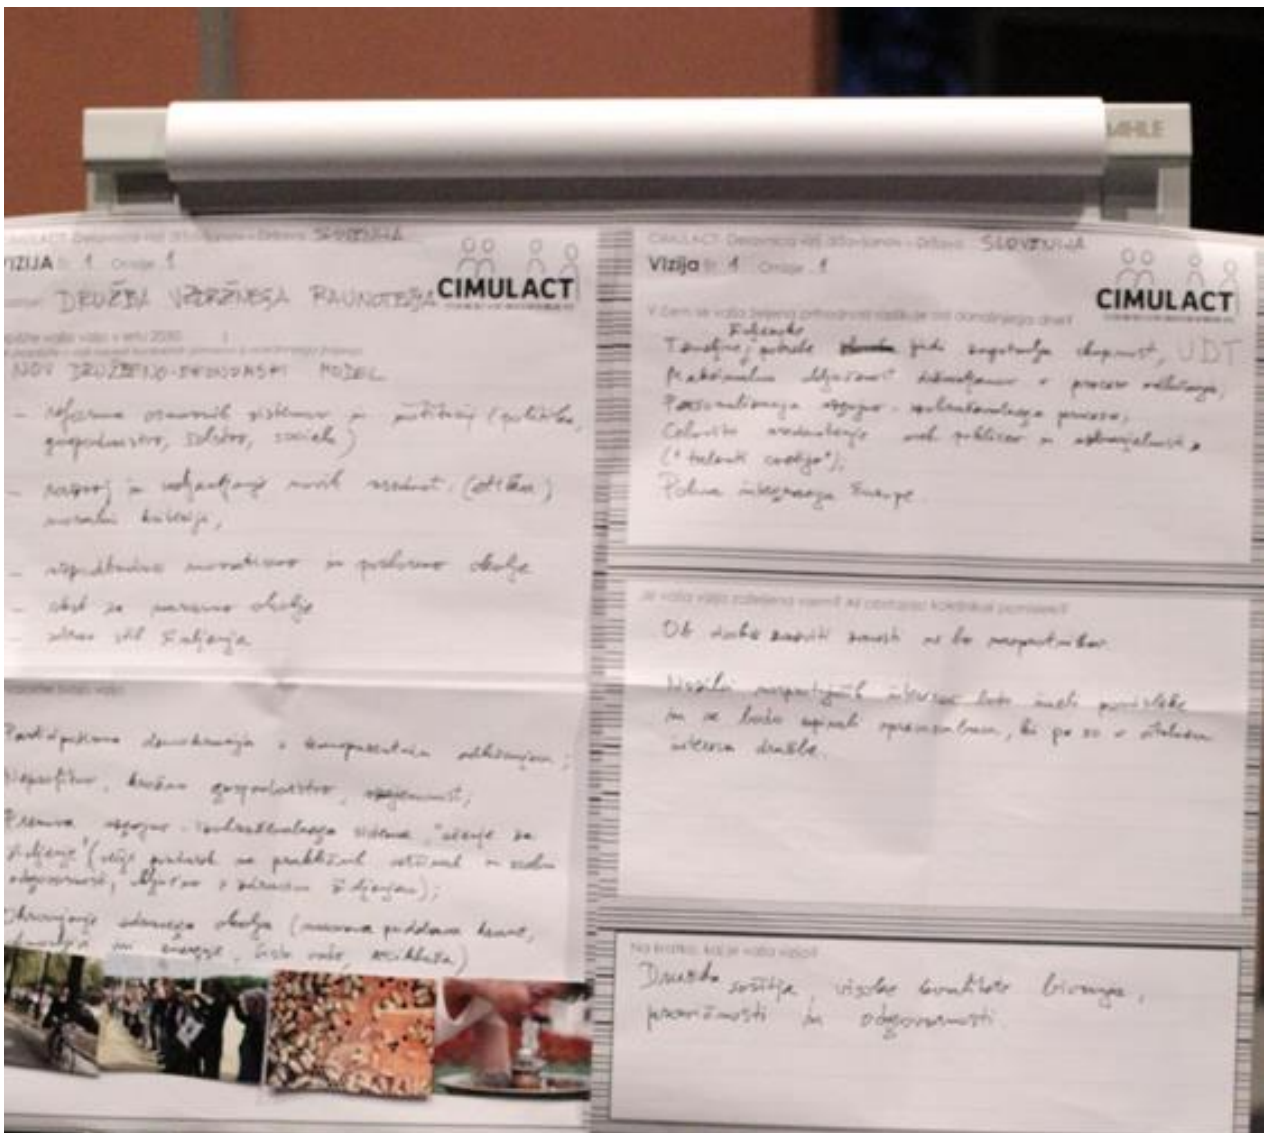 DAHLE
CIMULACT: Delavnica vizij državljanov - Država: SLOVENIJA
VIZIJA št. 1 Omizje 1
CIMULACT
DRUŽBA VZDRŽNEGA RAVNOTEŽJA
vašo vizijo v letu 2050
NOV DRUŽBENO-EKONOMSKI MODEL
- reforma osnovnih sistemov in (politika,
gospodarstvo, šolstvo, sociala)
- razvoj in uveljavljanje novih vrednot (etika)
moralni kriteriji,
- in poslovno okolje
- skrb za naravno okolje
- zdrav stil življenja
Participativna demokracija s transparentnim odločanjem;
Neprofitno, krožno gospodarstvo,
Prenova vzgojno-izobraževalnega sistema, "učenje za
življenje" (večji poudarek na praktičnih veščinah in osebni
odgovornosti, vključno z zdravim življenjem);
Ohranjanje zdravega okolja (naravna pridelava hrane,
in energije, čista voda, reciklaža)
CIMULACT: Delavnica vizij državljanov - Država: SLOVENIJA
Vizija št. 1 Omizje 1
CIMULACT
V čem se vaša željena prihodnost razlikuje od današnjega dne?
življenske
Temeljne potrebe ljudi zagotavlja skupnost, UDT
Maksimalna vključenost državljanov v proces odločanja,
Personalizacija vzgojno-izobraževalnega procesa,
Celovito vrednotenje vseh poklicev in ustvarjalnosti
("talenti cvetijo");
Polna integracija Evrope.
Je vaša vizija zaželjena vsem? Ali obstajajo kakršnikoli pomisleki?
Ob dobri razviti zavesti ne bo nasprotnikov.
Nosilci nasprotujočih interesov bodo imeli pomisleke
in se bodo upirali spremembam, ki pa so v
interesu družbe.
Na kratko, kaj je vaša vizija?
Družba sožitja, visoke kvalitete bivanja,
pravičnosti in odgovornosti.